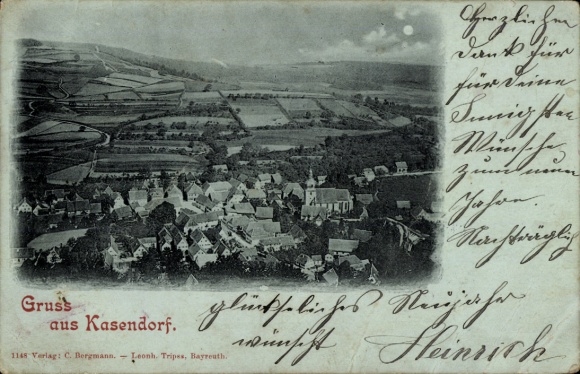 Herzlichen
Dank für
für Deine
Innigsten
Wünsche
zum neuen
Jahre.
Nachträglich
glückseliches Neujahr
wünscht Heinrich
Gruss
aus Kasendorf.
1148 Verlag: C. Bergmann. — Leonh. Tripss, Bayreuth.